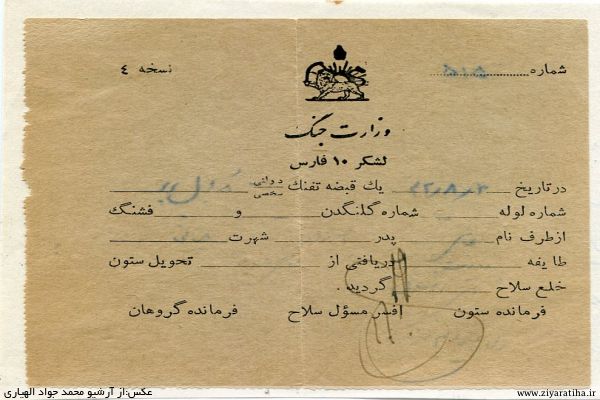 شماره
نسخه ۴
وزارت جنگ
لشکر ۱۰ فارس
در تاریخ یك قبضه تفنك دولتی شخصی
شماره لوله شماره گلنگدن و فشنگ
از طرف نام پدر شهرت
طایفه دریافتی از تحویل ستون
خلع سلاح گردید .
فرمانده ستون افسر مسؤل سلاح فرمانده گروهان
عکس:از آرشیو محمد جواد الهیاری
www.ziyaratiha.ir